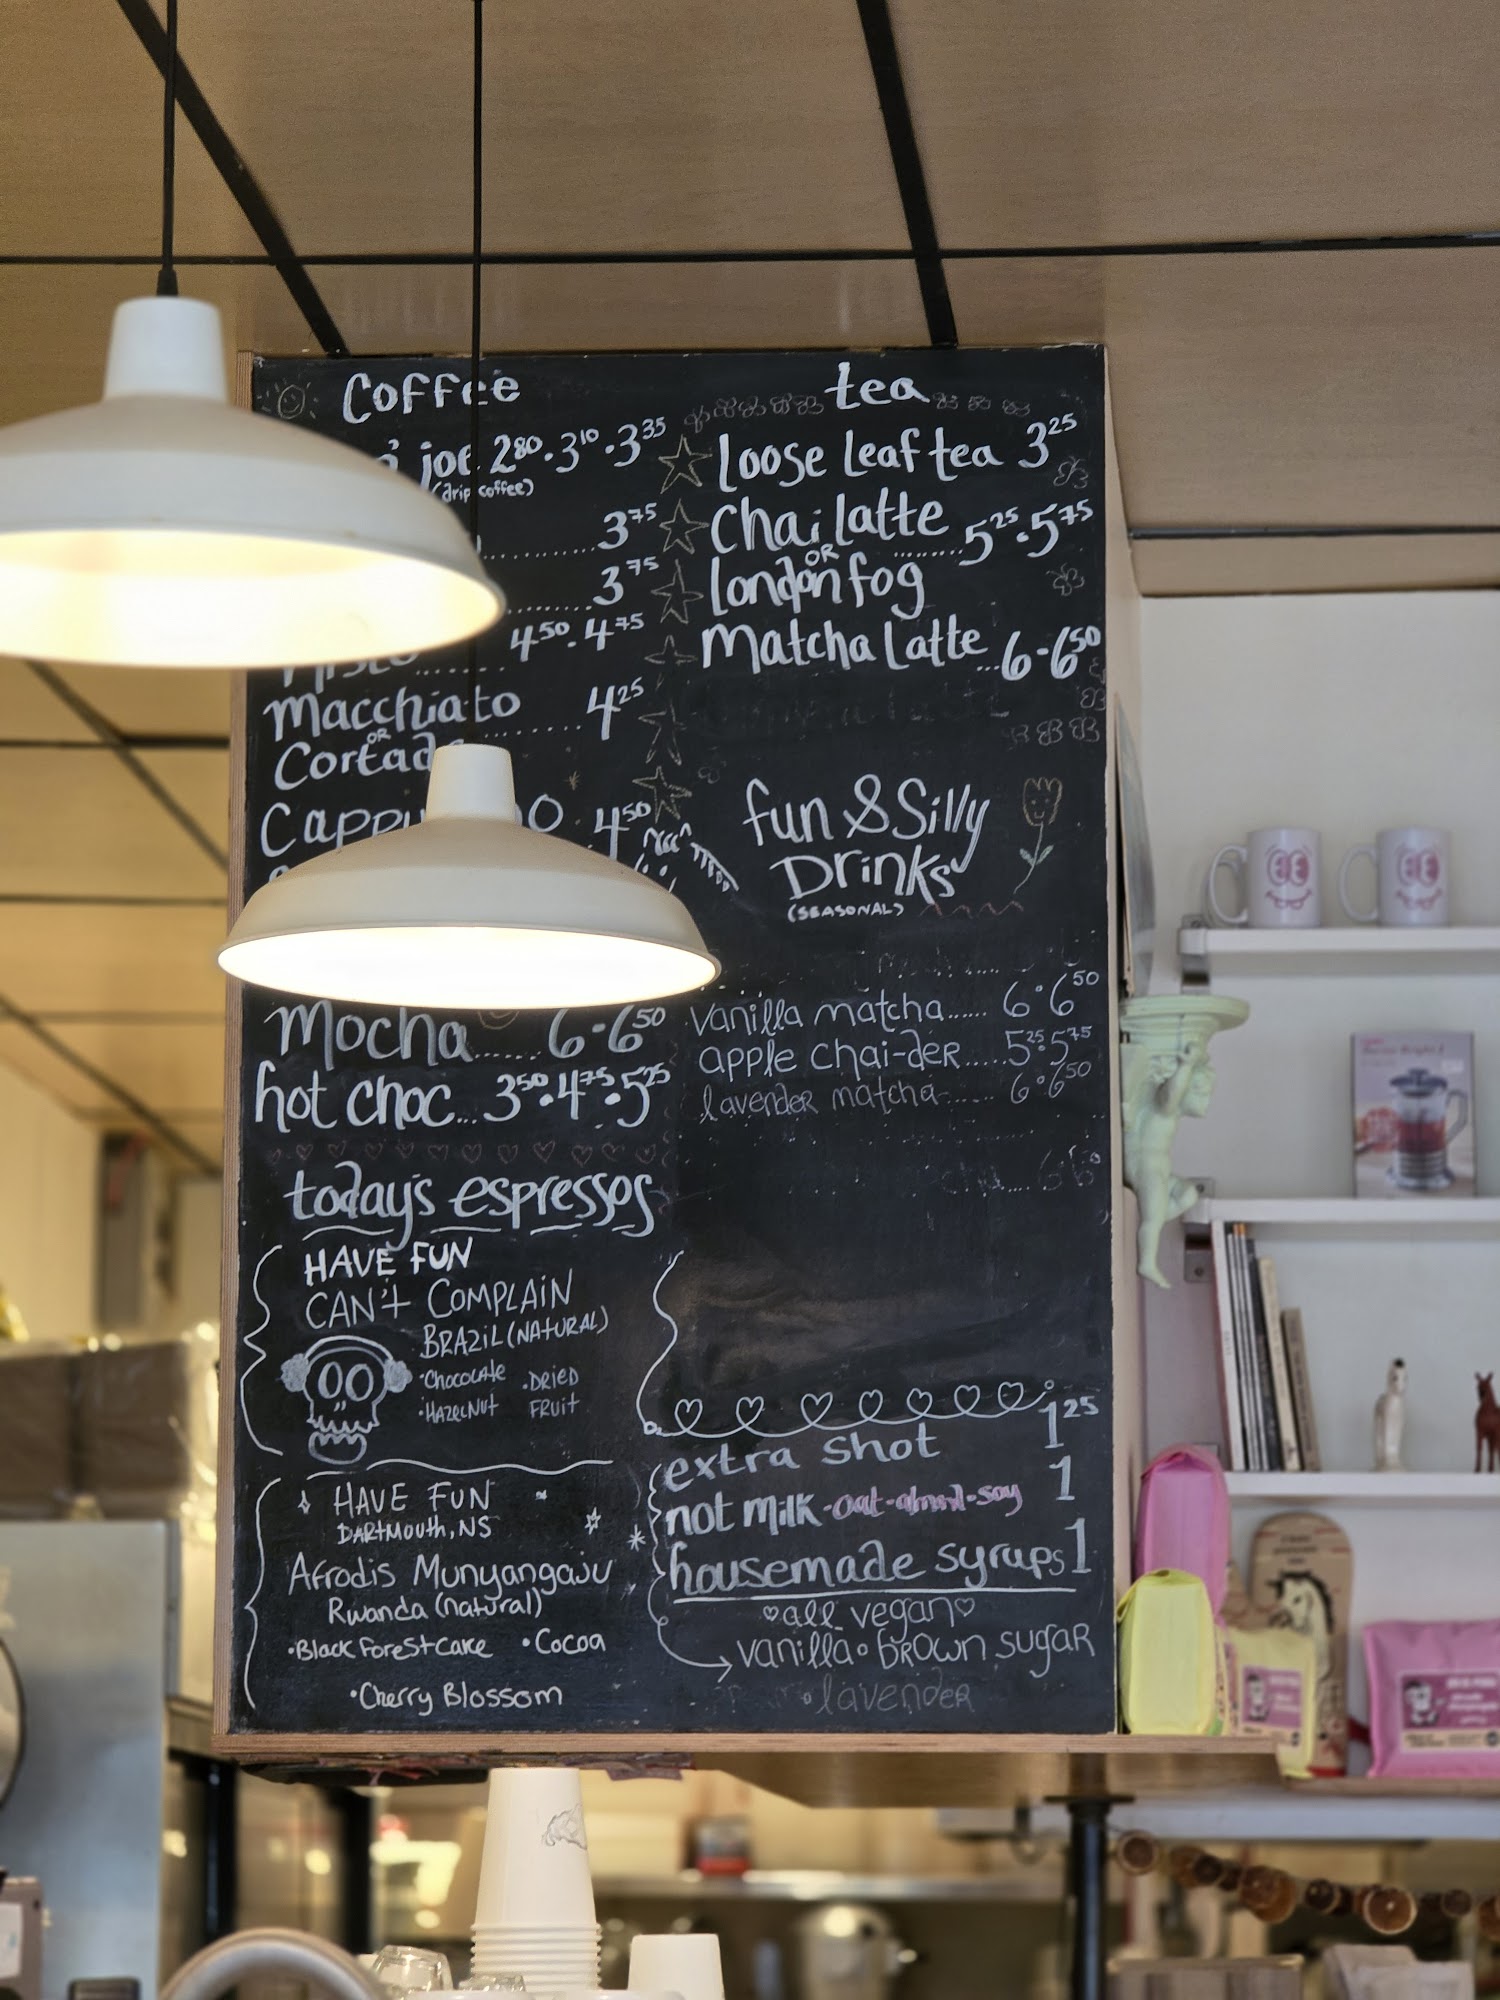 Coffee
joe 2.80 · 3.10 · 3.35
(drip coffee)
3.75
3.75
4.50 · 4.75
Macchiato 4.25
OR
Cortado
4.50
Mocha...... 6 - 6.50
hot choc... 3.50 · 4.75 · 5.25
today's espressos
HAVE FUN
CAN't COMPLAIN
BRAZIL (NATURAL)
• Chocolate • DRIED
• HAZELNUT FRUIT
HAVE FUN
DARTMOUTH, NS
Afrodis Munyangaju
Rwanda (natural)
• Black Forest Cake • Cocoa
• Cherry Blossom
tea
loose leaf tea 3.25
Chai latte ......... 5.25 · 5.75
OR
london fog
Matcha Latte ... 6 - 6.50
fun & Silly
Drinks
(SEASONAL)
vanilla matcha...... 6 · 6.50
apple chai-der..... 5.25 · 5.75
lavender matcha...... 6 · 6.50
extra shot 1.25
not milk - oat - almond - soy 1
housemade syrups 1
♡ all vegan ♡
vanilla • brown sugar
• lavender